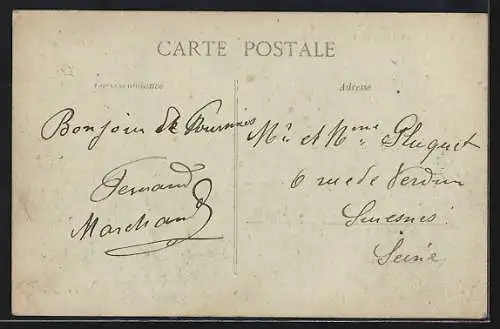 CARTE POSTALE
Correspondance
Bonjour de
Fernand
Marchand
Adresse
Mr. et Mme. Pluquet
6 rue de Verdun
Suresnes
Seine